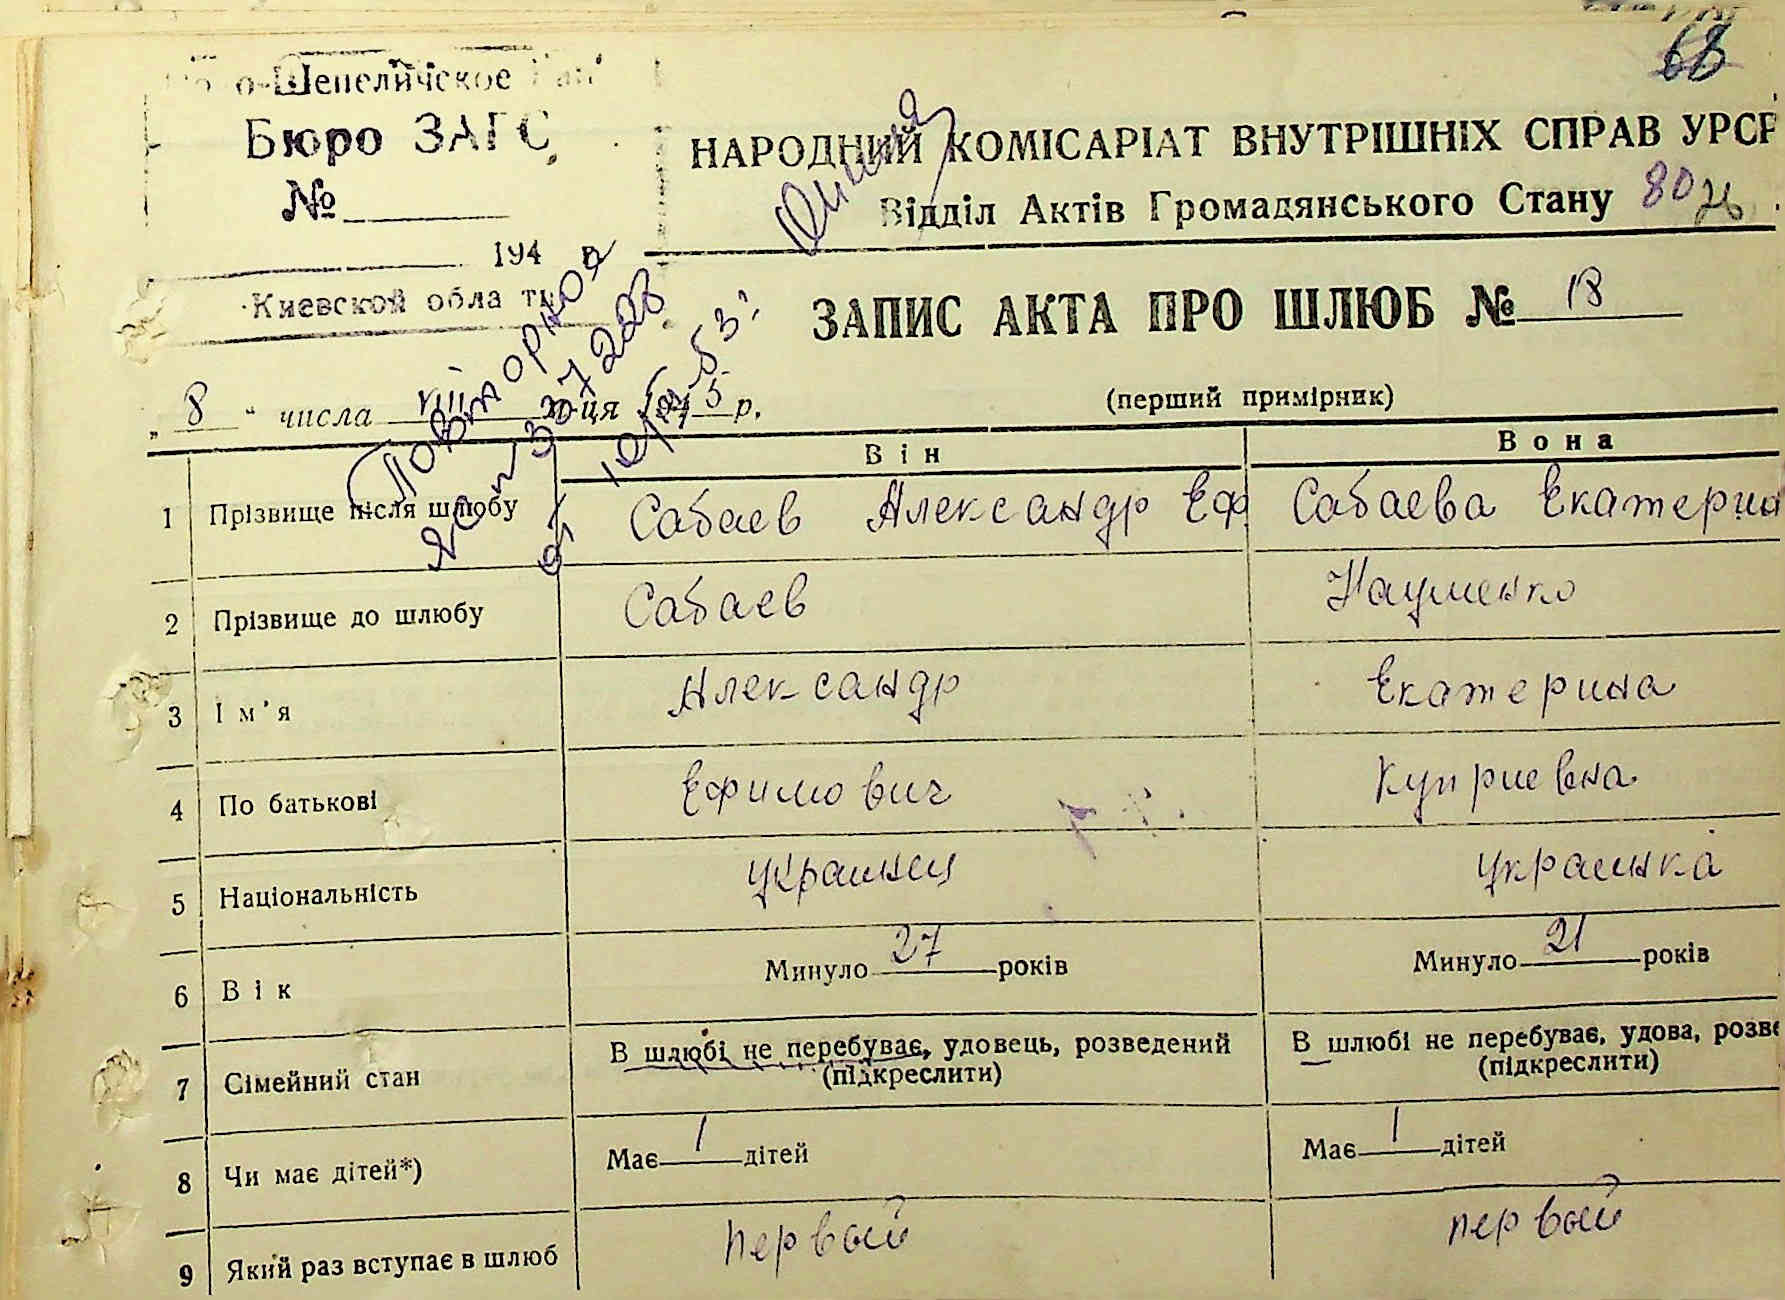 68
о-Шепеличское
Бюро ЗАГС
№
194
Киевской обла
НАРОДНИЙ КОМІСАРІАТ ВНУТРІШНІХ СПРАВ УРСР
Відділ Актів Громадянського Стану 80
ЗАПИС АКТА ПРО ШЛЮБ № 18
(перший примірник)
Повторное
„8“ числа VIII м-ця 1945 р.
Він Вона
1 Прізвище після шлюбу Сабаев Александр Еф Сабаева Екатерина
2 Прізвище до шлюбу Сабаев Науменко
3 Ім'я Александр Екатерина
4 По батькові Ефимович Куприевна
5 Національність украинец украинка
6 Вік Минуло 27 років Минуло 21 років
7 Сімейний стан В шлюбі не перебуває, удовець, розведений (підкреслити) В шлюбі не перебуває, удова, розве (підкреслити)
8 Чи має дітей*) Має 1 дітей Має 1 дітей
9 Який раз вступає в шлюб первый первый